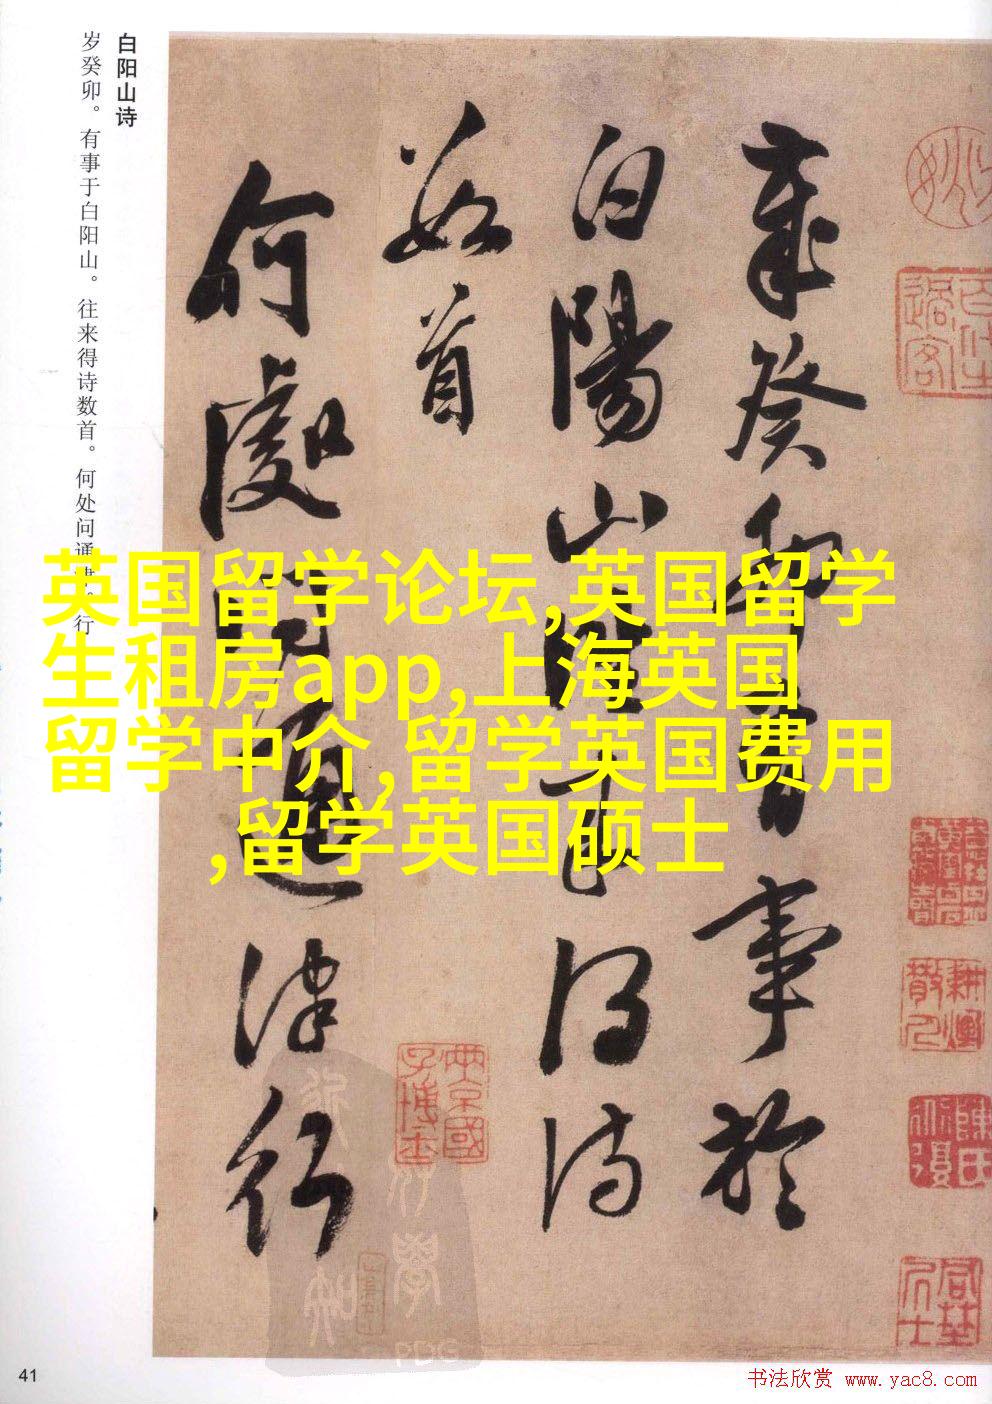 白阳山诗
岁癸卯。有事于白阳山。往来得诗数首。何处问通津。行
歲癸卯有事於
白陽山往来得诗
数首
何處問通津行
英国留学论坛,英国留学
生租房app,上海英国
留学中介,留学英国费用
,留学英国硕士
耕烟散人
陳氏
PDG
41
书法欣赏 www.yac8.com